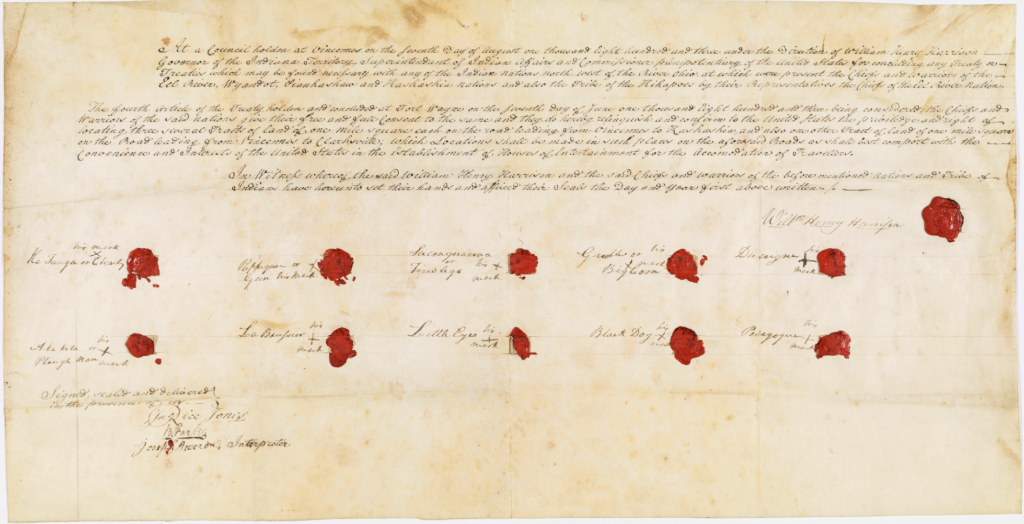 At a Council holden at Vincennes on the Seventh Day of August one thousand Eight hundred and three under the Direction of William Henry Harrison
Governor of the Indiana Territory, Superintendent of Indian Affairs and Commissioner plenipotentiary of the United States for concluding any Treaty or
Treaties which may be found necessary with any of the Indian nations north west of the River Ohio at which were present the Chiefs and Warriors of the
Eel River, Wyandot, Piankashaw and Kaskaskia nations and also the Tribe of the Kikapoes by their Representatives the Chiefs of the Eel River Nation.
The fourth Article of the Treaty holden and concluded at Fort Wayne on the Seventh day of June one thousand Eight hundred and three being considered, the Chiefs and
Warriors of the said Nations give their free and full Consent to the same and they do hereby relinquish and confirm to the United States the priviledge and right of
locating three several Tracts of land of one mile square each on the road leading from Vincennes to Kaskaskia, and also one other Tract of land of one mile square
on the Road leading from Vincennes to Clarksville; which Locations shall be made in such places on the aforesaid Roads as shall best comport with the
Convenience and Interest of the United States in the Establishment of Houses of Entertainment for the Accomodation of Travellers.
In Witness whereof, the said William Henry Harrison and the said Chiefs and Warriors of the before mentioned nations and Tribe of
Indians have hereunto set their hands and affixed their Seals the Day and Year first above written.
Willm Henry Harrison
his mark
Ka Tunga or Charly
or
Gun his mark
or his
mark
his
or mark
Big Corn
Ducoigne
mark
his
or
Plough Man mark
his
mark
Little Eyes his
mark
Black Dog his
mark
Pedagogue his
mark
Signed, sealed and delivered
in the presence of us
Jno Rice Jones
B Parke
Joseph Barron, Interpreter